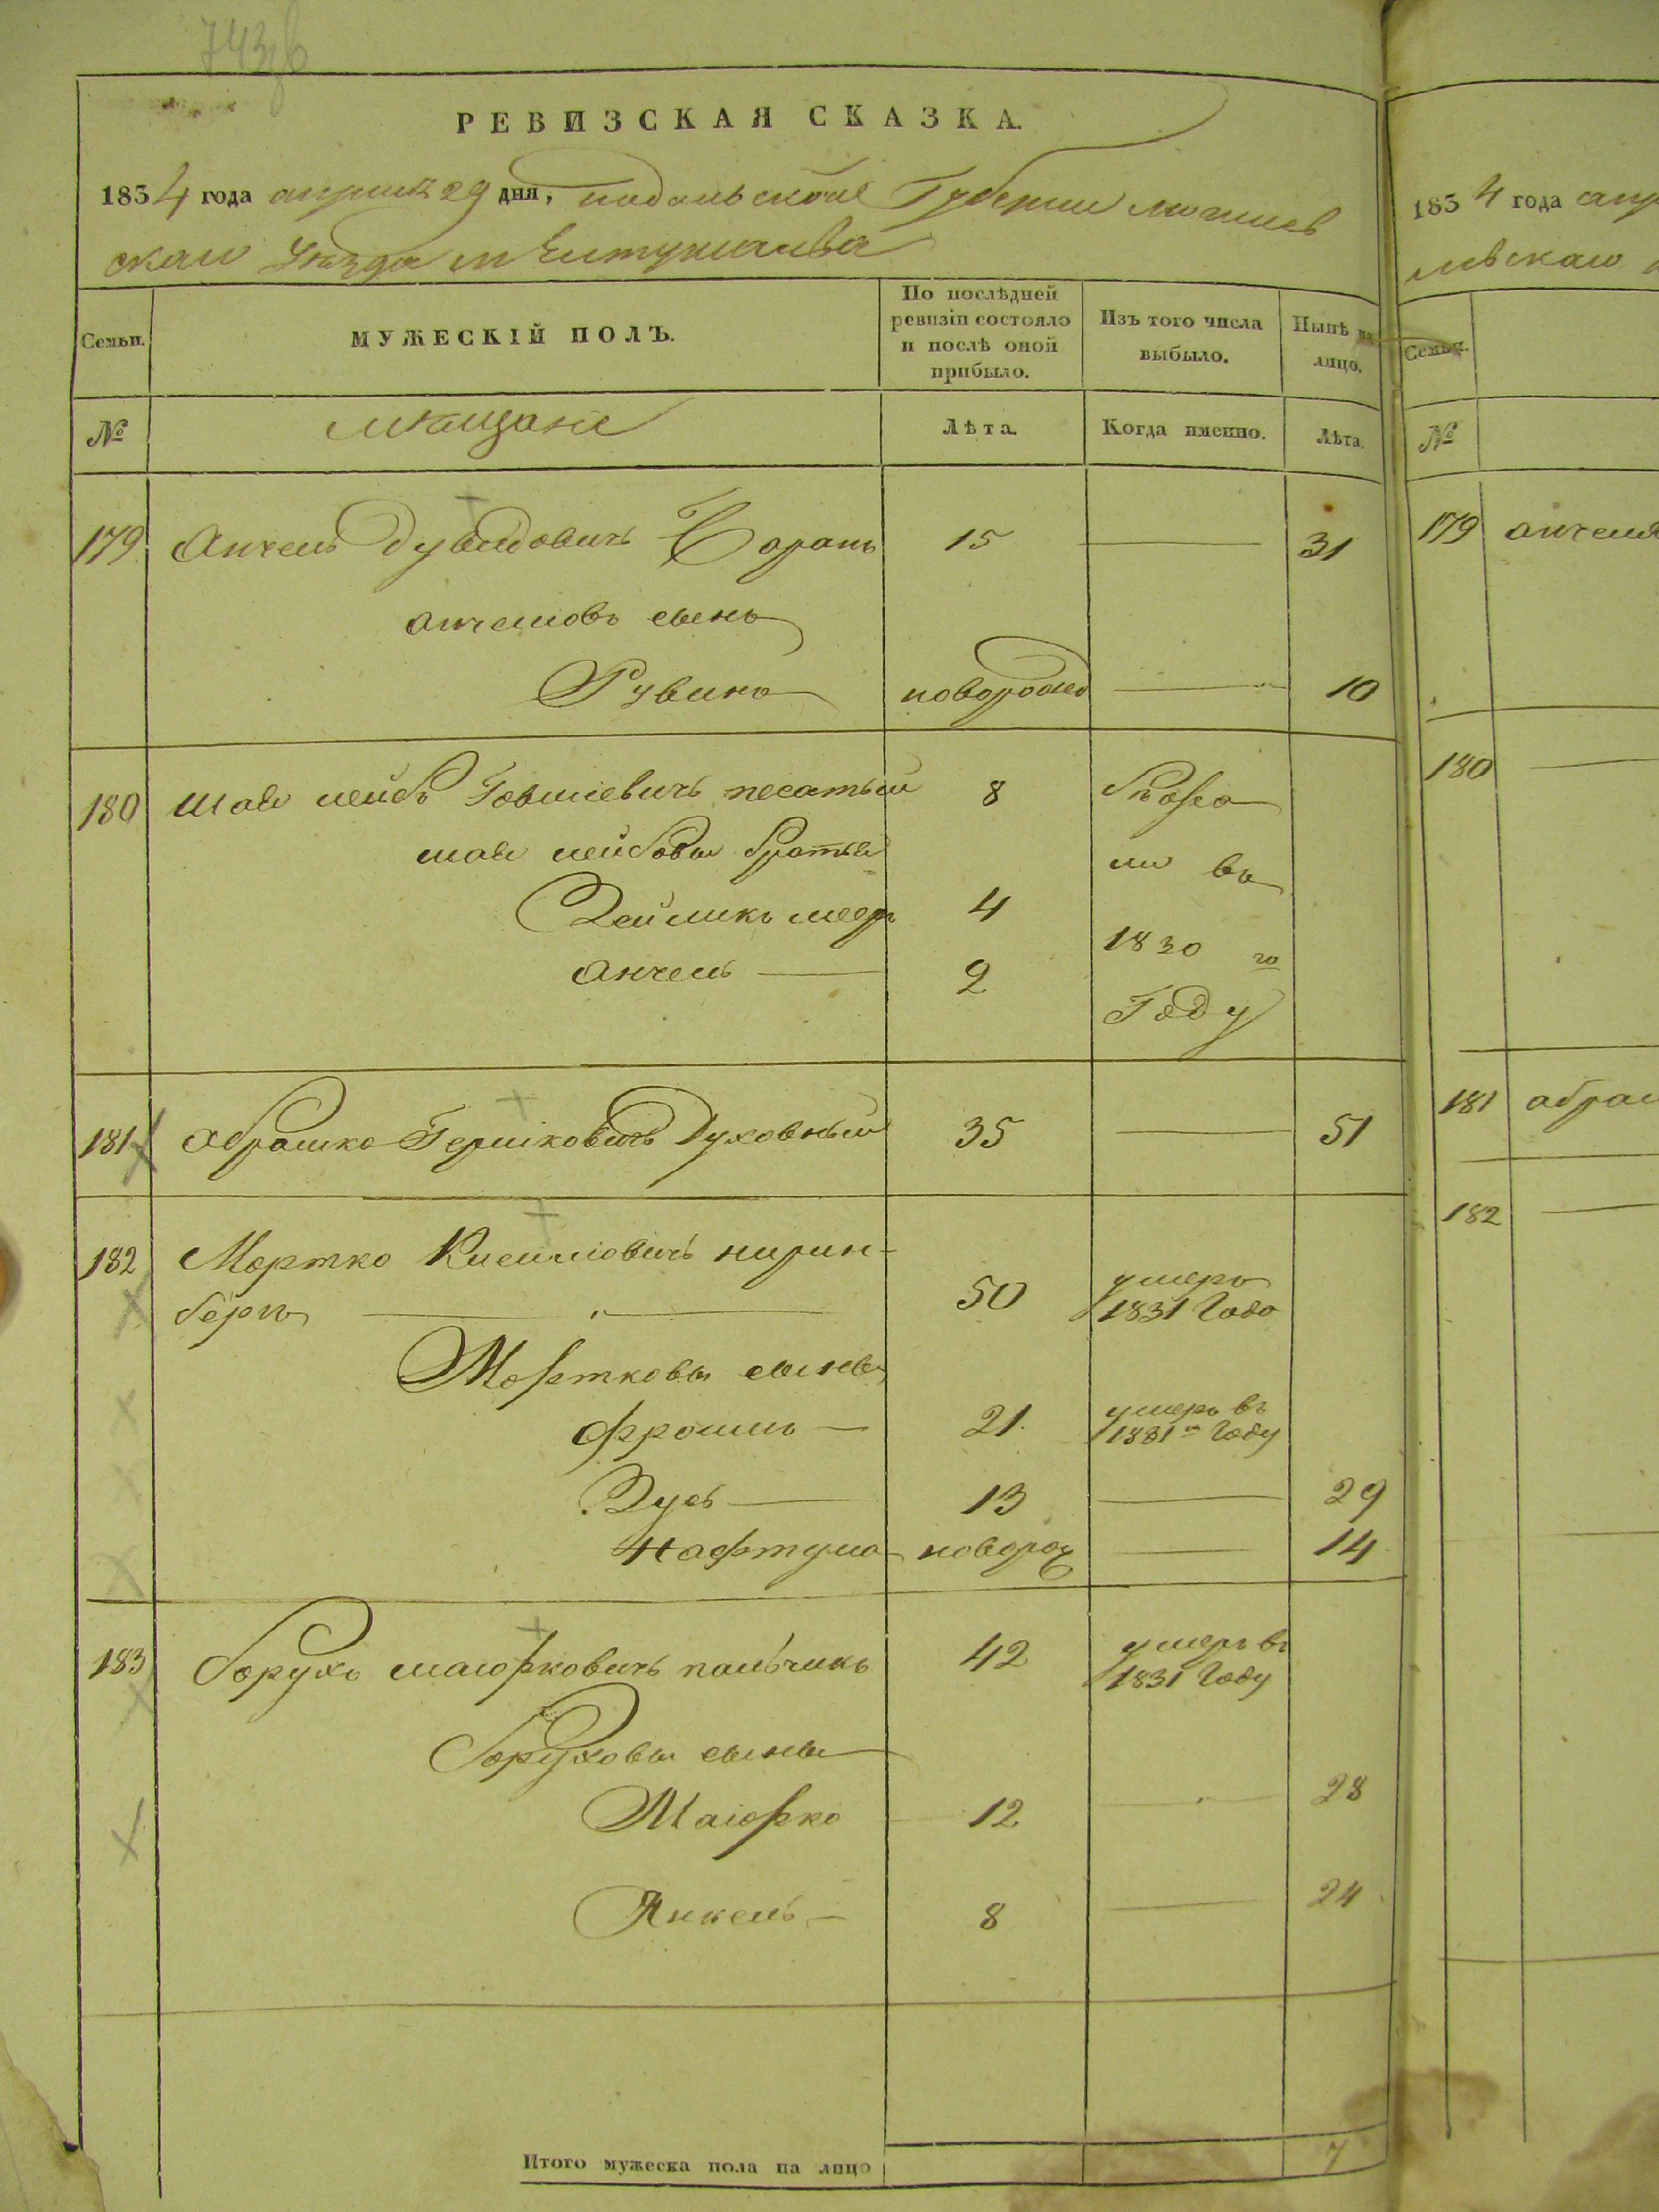 743 об
РЕВИЗСКАЯ СКАЗКА.
1854 года апреля 29 дня, Подольской Губернии Могилев
скаго Уезда м Елтушкова
Семьи. МУЖЕСКІЙ ПОЛЪ. По послѣдней ревизіи состояло и послѣ оной прибыло. Изъ того числа выбыло. Нынѣ на лицо.
№ мѣщане Лѣта. Когда именно. Лѣта.
179 Анчель Дувидовичь 15 31
Анчелювъ сынъ
Рувинъ новорожд 10
180 Шая Лейбъ Говшіевичъ песатый 8
Шая Лейбовы братья
Зейликъ меер 4 въ
Анчель 2 1830 го
Году
181 Абрашко Гершковичъ Духовный 35 51
182 Мортко Кисилювичъ нирин-
бергъ 50 умеръ 1831 Года
Мортковы сыны
Фроимъ 21. умеръ въ 1831 м Году
Зусь 13 29
Нафтула новорож 14
183 Борухъ маіорковичъ пальчикъ 42 умеръ въ 1831 Году
Боруховы сыны
Маіорко 12 28
Янкель 8 24
Итого мужеска пола на лицо 7
1854 года апр
левскаго
Семьи.
№
179 анчеля
180
181 абраш
182